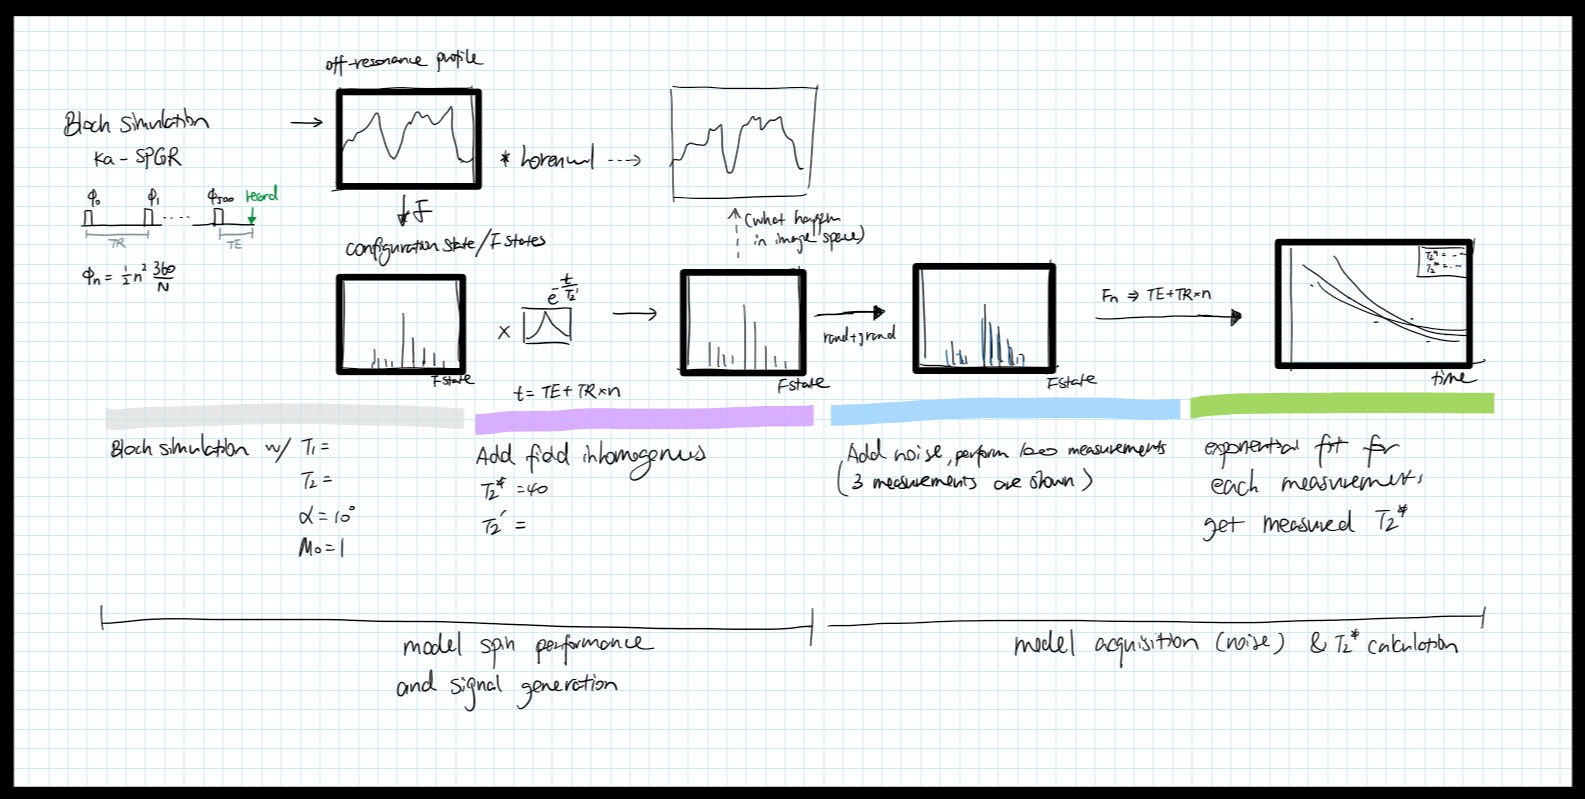 off-resonance profile
Bloch simulation
ka - SPGR
ϕ₀ ϕ₁ ϕ₅₀₀ record
TR TE
ϕn = 1/2 n² 360/N
* Lorenzian
F
configuration state / F states
(what happen
in image space)
× e^(-t/T₂')
t = TE + TR×n
F state
F state
rand + grand
F state
Fn ⇒ TE + TR×n
T₂* = ...
T₂* = ...
time
Bloch simulation w/ T₁ =
T₂ =
α = 10°
M₀ = 1
Add field inhomogenus
T₂* = 40
T₂' =
Add noise, perform 1000 measurements
(3 measurements are shown)
exponential fit for
each measurement,
get measured T₂*
model spin performance
and signal generation
model acquisition (noise) & T₂* calculation